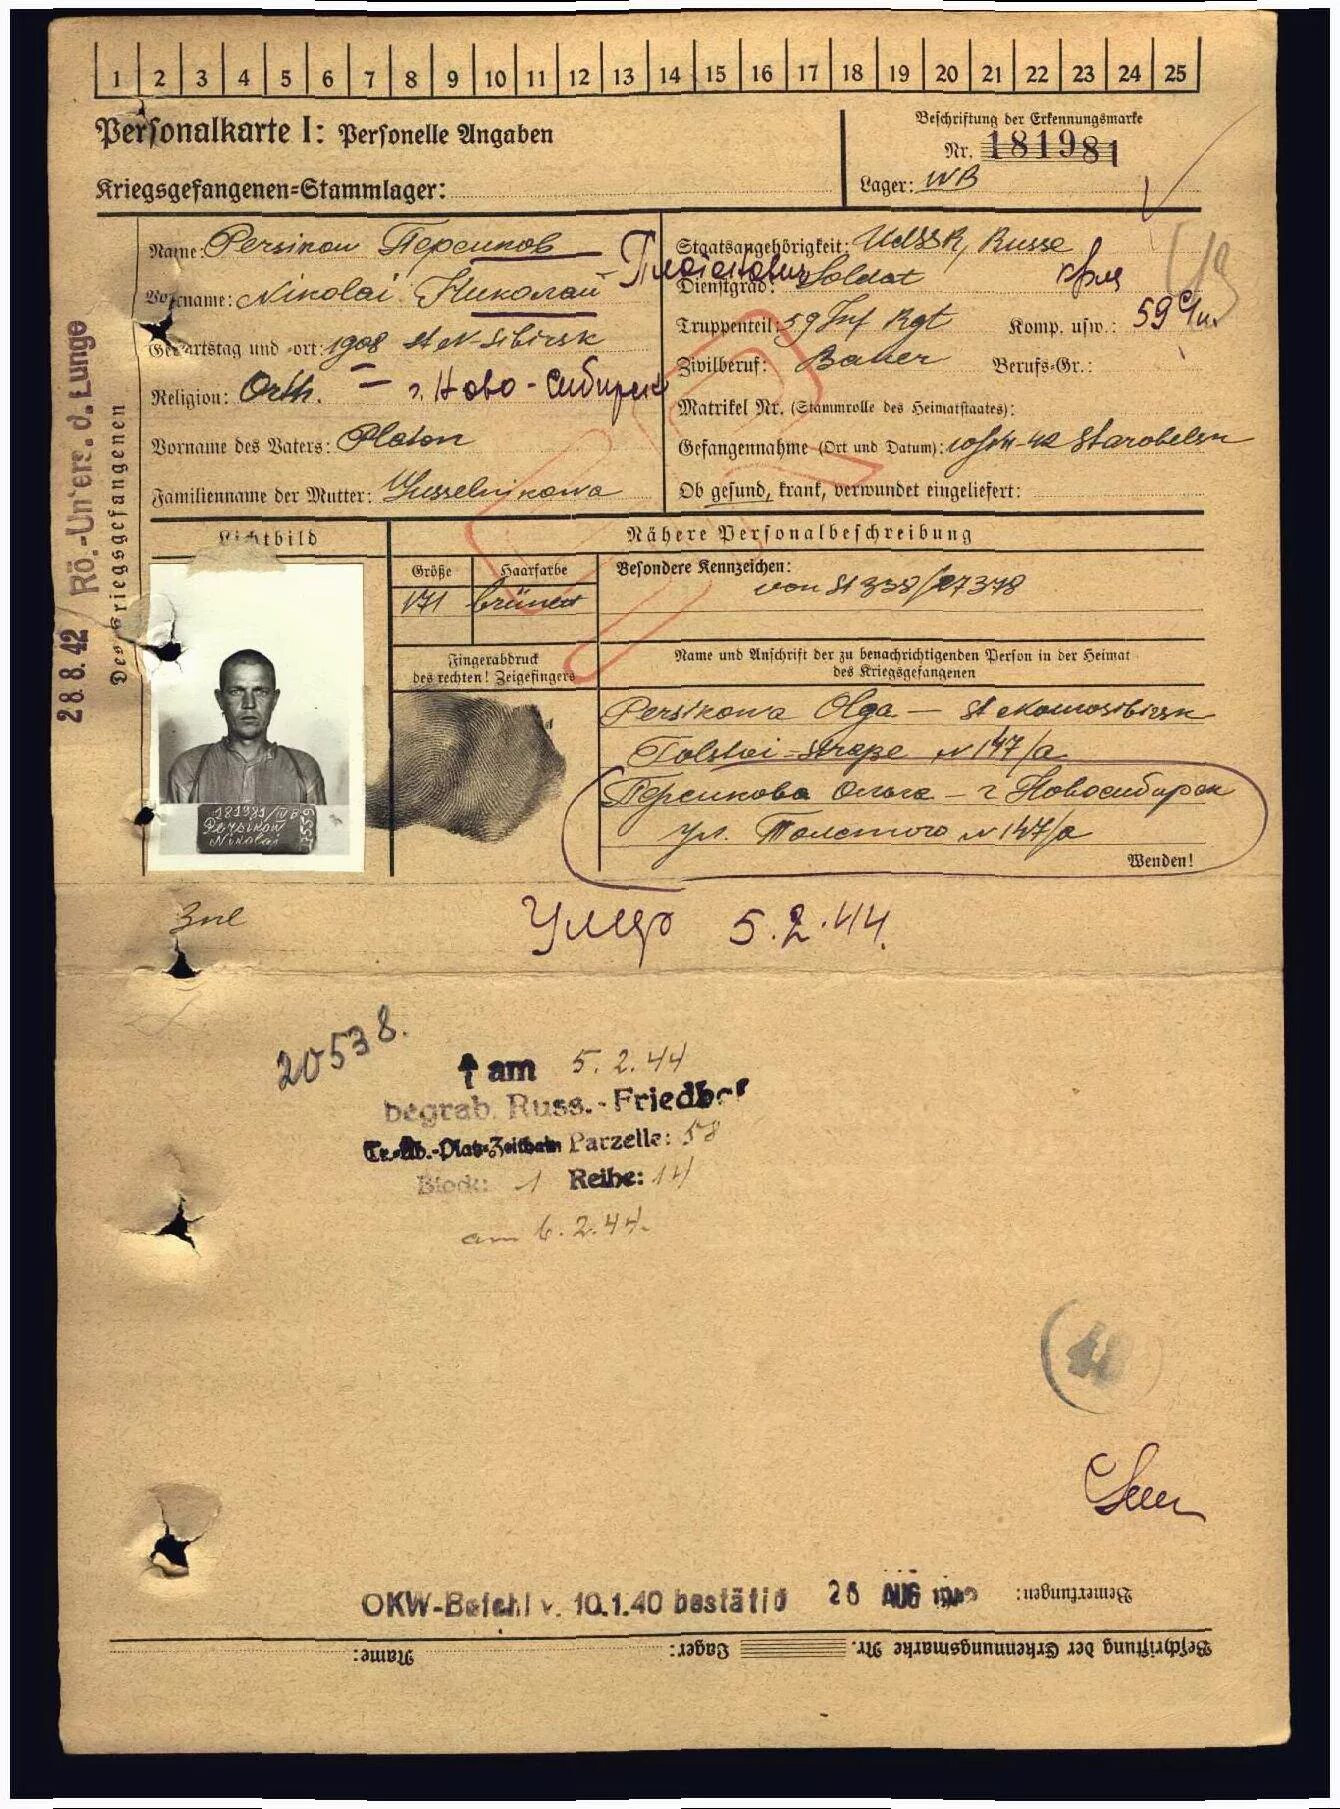 1 2 3 4 5 6 7 8 9 10 11 12 13 14 15 16 17 18 19 20 21 22 23 24 25
Personalkarte I: Personelle Angaben
Beschriftung der Erkennungsmarke
Nr. 181981
Kriegsgefangenen-Stammlager:
Lager: IVB
Name: Persikow Персиков
Vorname: Nikolai Николай
Платонович
Geburtstag und -ort: 1908 st N-Sibirsk
Religion: Orth. — г. Ново-Сибирск
Vorname des Vaters: Platon
Familienname der Mutter: Gusselnikowa
Staatsangehörigkeit: UdSSR, Russe
Dienstgrad: Soldat
Truppenteil: 59 Inf Rgt Komp. usw.: 59
Zivilberuf: Bauer Berufs-Gr.:
Matrikel Nr. (Stammrolle des Heimatstaates):
Gefangennahme (Ort und Datum): Starobelsk
Ob gesund, krank, verwundet eingeliefert:
28.8.42 Rö.-Unters. d. Lunge
Des Kriegsgefangenen
Lichtbild
Nähere Personalbeschreibung
Größe Haarfarbe Besondere Kennzeichen:
171 brünett von St 338/27378
Fingerabdruck
des rechten! Zeigefingers
Name und Anschrift der zu benachrichtigenden Person in der Heimat
des Kriegsgefangenen
Persikowa Olga — st Nowosibirsk
Tolstoi-Straße N 147/a
Персикова Ольга — г Новосибирск
ул. Толстого N 147/a
Wenden!
181981/IVB
Persikow
Nikolai
7559
Умер 5.2.44.
20538.
† am 5.2.44
begrab. Russ.-Friedhof
Tr.-Üb.-Platz Zeithain Parzelle: 58
Block: 1 Reihe: 14
am 6.2.44.
OKW-Befehl v. 10.1.40 bestätig 26 AUG 1942
Bemerkungen:
Beschriftung der Erkennungsmarke Nr. Lager: Name: